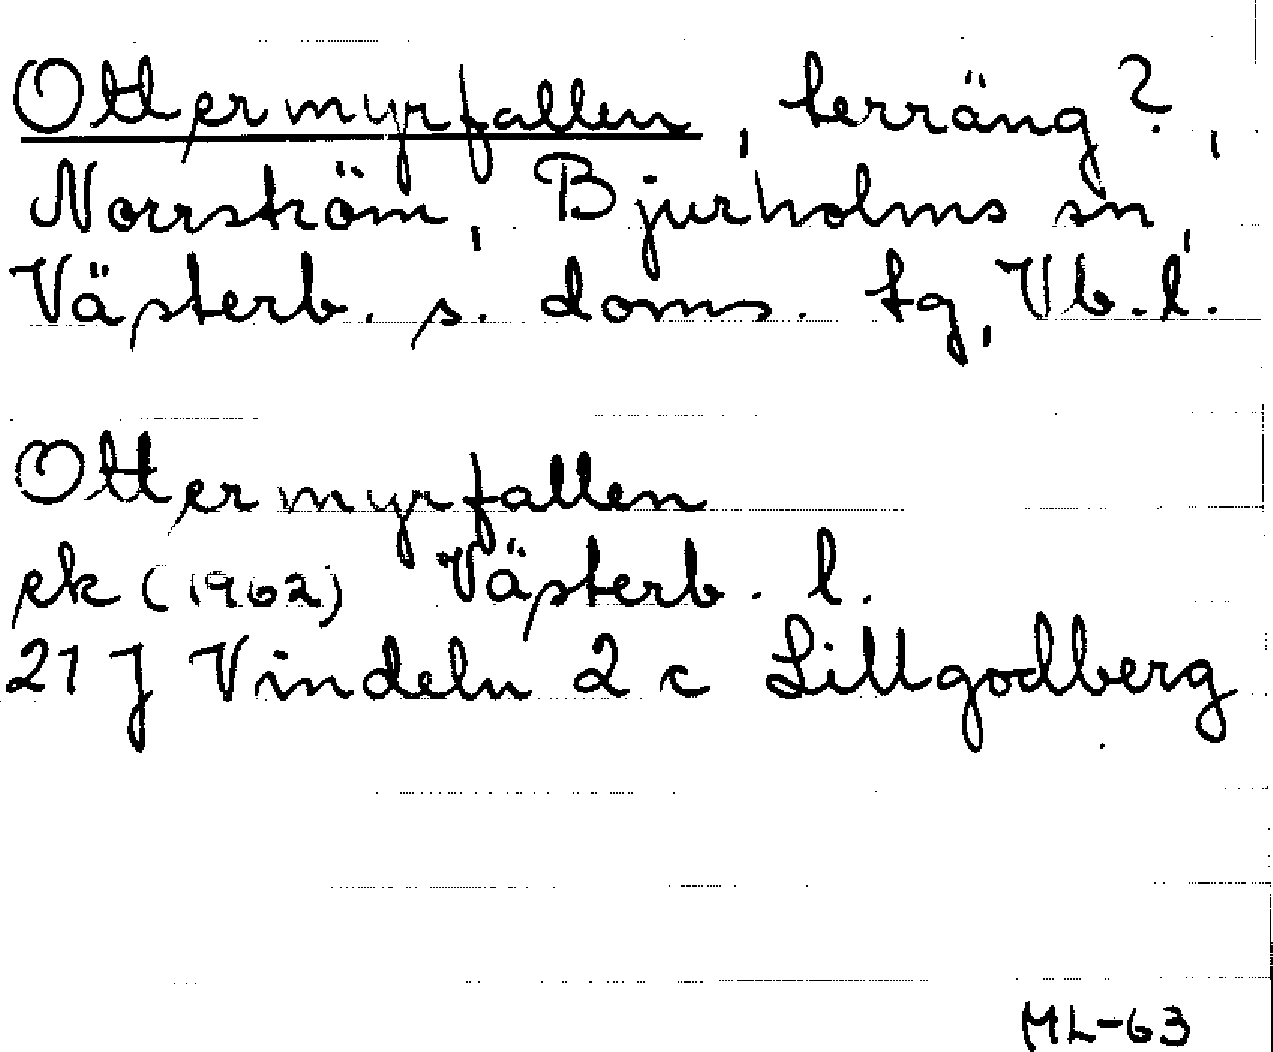 Ottermyrfallen, terräng?,
Norrström, Bjurholms sn,
Västerb. s. doms. tg, Vb. l.
Ottermyrfallen
ek (1962) Västerb. l.
21 J Vindeln 2 c Lillgodberg
ML-63